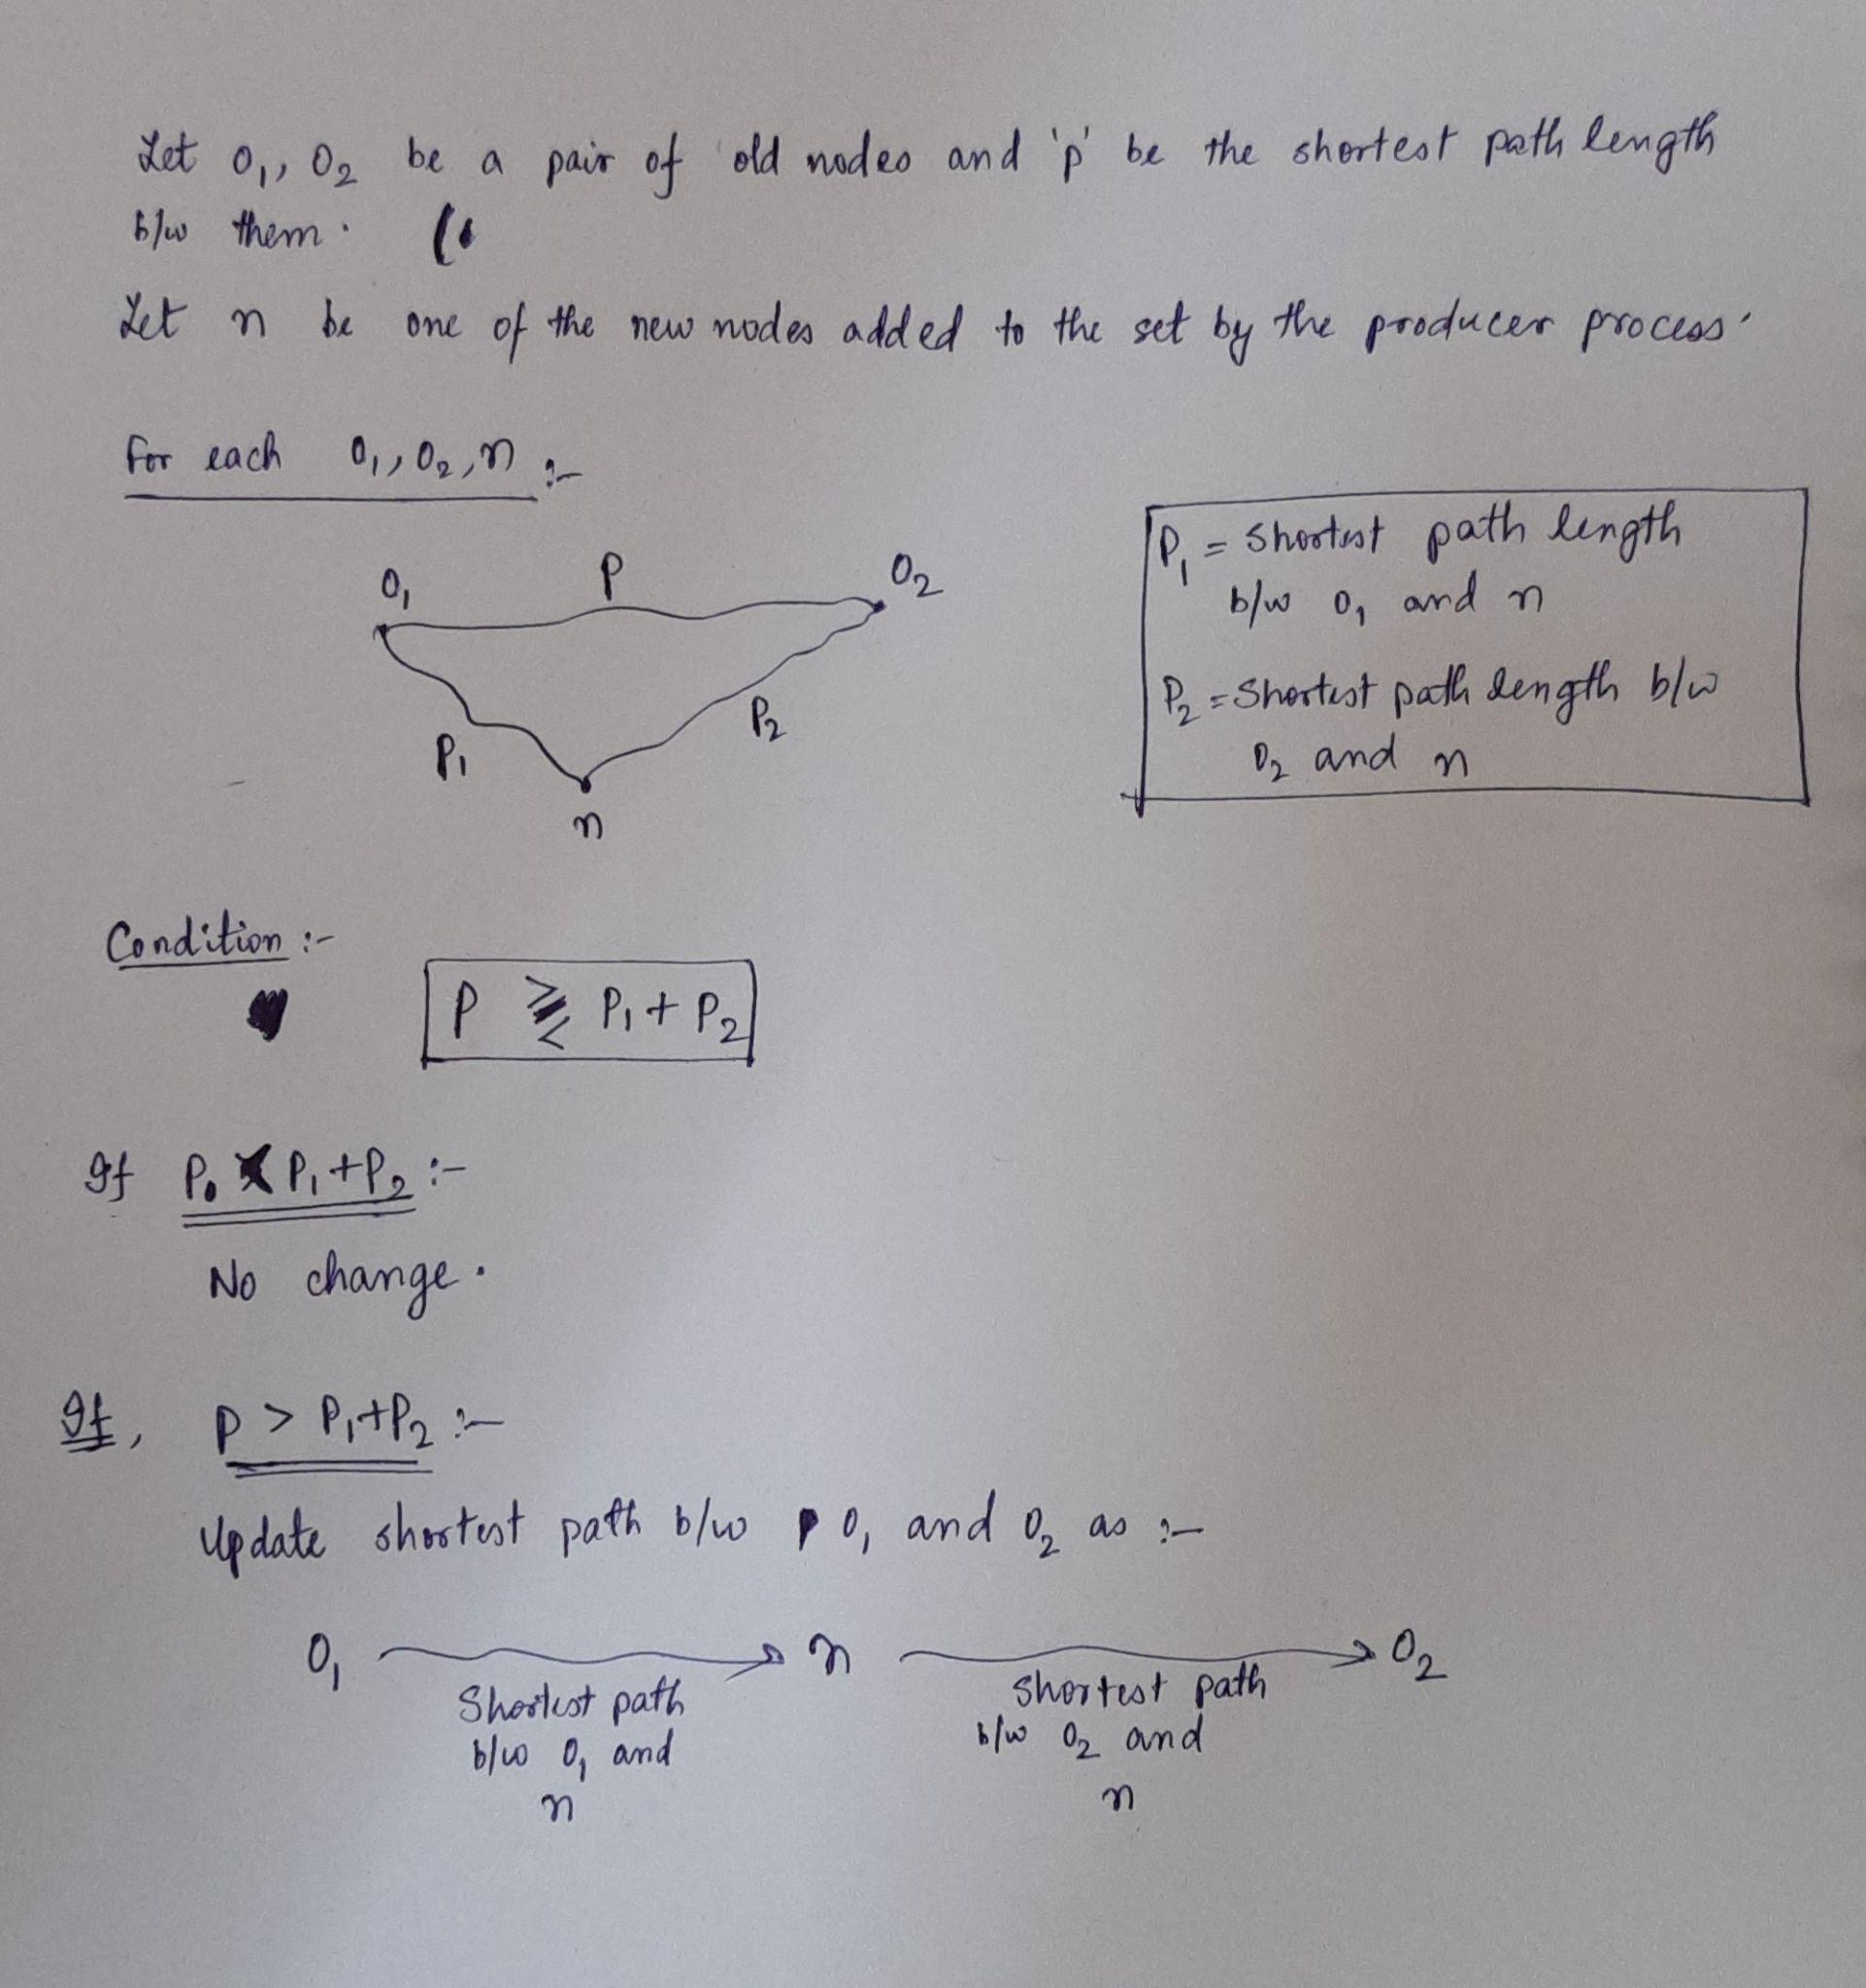 Let O₁, O₂ be a pair of old nodes and 'p' be the shortest path length
b/w them.
Let n be one of the new nodes added to the set by the producer process.
For each O₁, O₂, n :-
O₁ P O₂
P₁ P₂
n
P₁ = Shortest path length
b/w O₁ and n
P₂ = Shortest path length b/w
O₂ and n
Condition :-
P ⪌ P₁ + P₂
If P P₁ + P₂ :-
No change.
If, P > P₁ + P₂ :-
Update shortest path b/w O₁ and O₂ as :-
O₁ n O₂
Shortest path
b/w O₁ and
n
Shortest path
b/w O₂ and
n